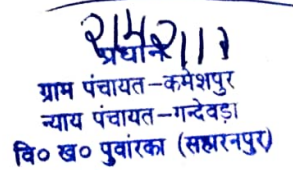 प्रधान
ग्राम पंचायत-कमेशपुर
न्याय पंचायत-गन्देवड़ा
वि० ख० पुवांरका (सहारनपुर)